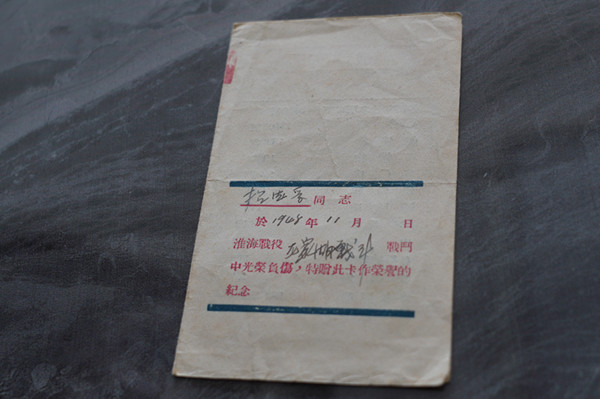 同志
於1948年11月 日
淮海戰役 戰鬥
中光榮負傷，特贈此卡作榮譽的
紀念